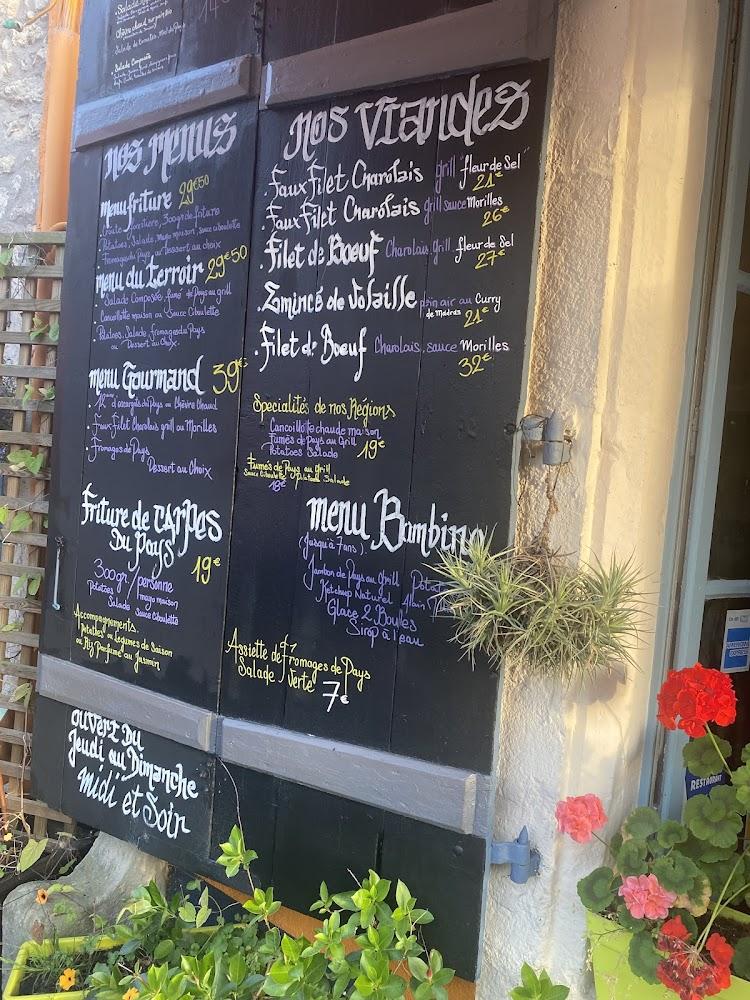 Salade Composée
nos Menus
menu friture 29€50
friture, 300gr de friture
Potatoes, Salade, mayo maison, sauce ciboulette
Fromages du Pays, ou Dessert au choix
menu du terroir 29€50
Salade Composée, fumé de Pays au grill
Cancoillotte maison ou Sauce Ciboulette
Potatoes, Salade, fromages du Pays
ou Dessert au Choix.
menu Gourmand 39€
12 escargots du Pays ou Chèvre Chaud
Faux Filet Charolais grill ou Morilles
Fromages de Pays
Dessert au Choix
friture de CARPes
Du Pays 19€
300gr./personne
Potatoes mayo maison
Salade Sauce Ciboulette
Accompagnements.
Potatoes ou Légumes de Saison
ou Riz Parfumé au Jasmin
ouvert Du
Jeudi au Dimanche
midi et Soir
nos Viandes
.Faux Filet Charolais grill "fleur de Sel"
21€
.Faux Filet Charolais grill sauce Morilles
26€
.Filet de Boeuf Charolais grill fleur de Sel
27€
.Emincé de Volaille plein air au Curry
de Madras 21€
.Filet de Boeuf Charolais, sauce Morilles
32€
Specialités de nos Régions
Cancoillotte chaude maison
Fumés de Pays au Grill 19€
Potatoes Salade
Fumés de Pays au Grill
Sauce Ciboulette Potatoes Salade
18€
menu Bambino
(Jusqu'à 7 ans)
Jambon de Pays au Grill
Ketchup Naturel
Glace 2 Boules
Sirop à l'eau
Assiette de Fromages de Pays
Salade Verte 7€
AMERICAN EXPRESS
RESTAURANT